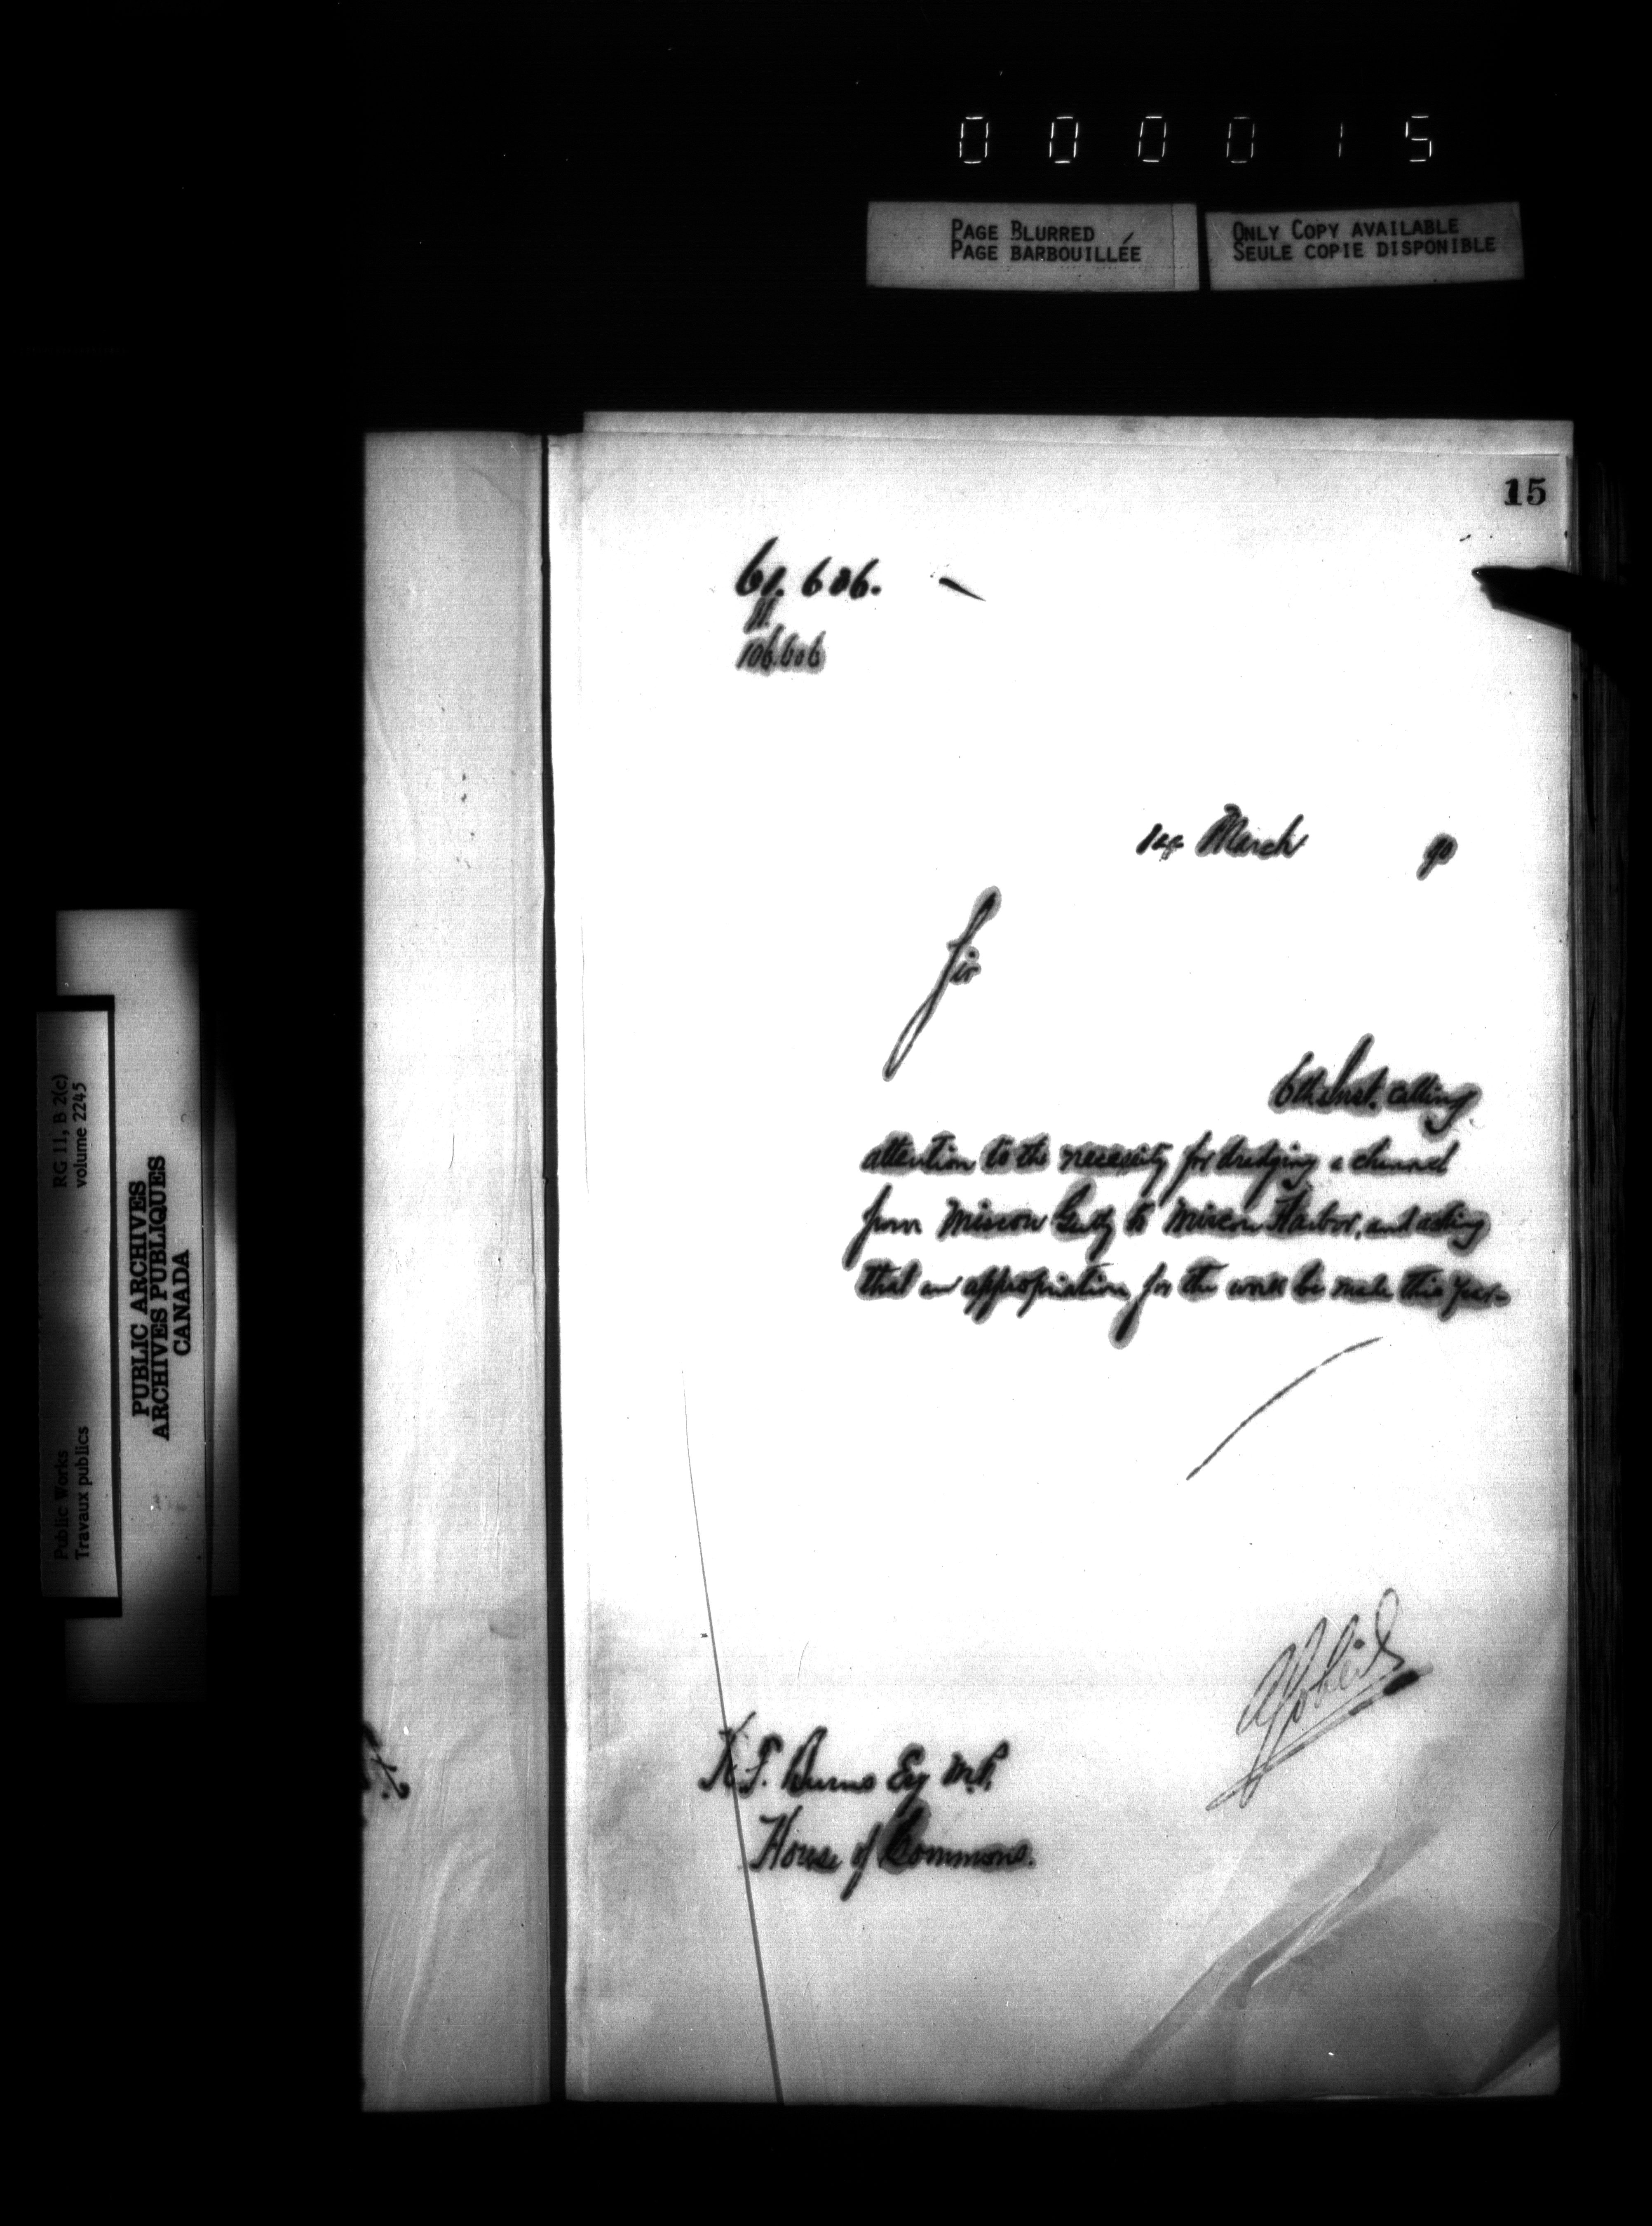 000015
PAGE BLURRED
PAGE BARBOUILLÉE
ONLY COPY AVAILABLE
SEULE COPIE DISPONIBLE
15
61.606.
106.606
March 90
Sir
6th Inst. calling
attention to the necessity for dredging a channel
from Miscou Gully to Miscou Harbor, and asking
that an appropriation for the work be made this year.
K.F. Burns Esq M.P.
House of Commons.
RG 11, B 2(c)
volume 2245
Public Works
Travaux publics
PUBLIC ARCHIVES
ARCHIVES PUBLIQUES
CANADA